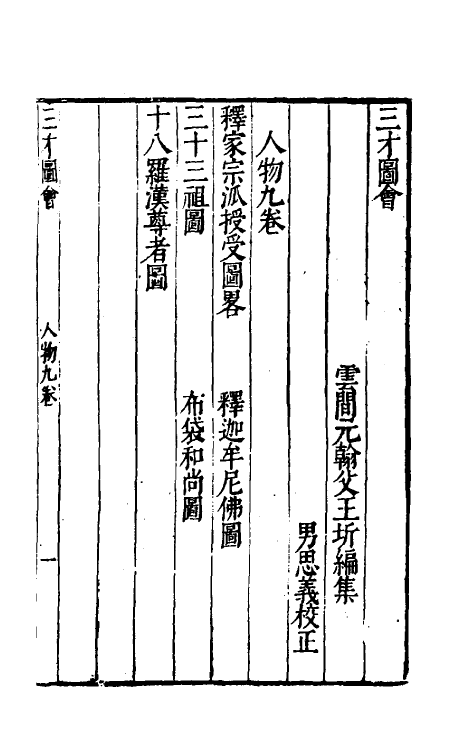 三才圖會
雲間元翰父王圻編集
男思義校正
人物九卷
釋家宗派授受圖畧
釋迦牟尼佛圖
三十三祖圖
布袋和尚圖
十八羅漢尊者圖
三才圖會
人物九卷
一